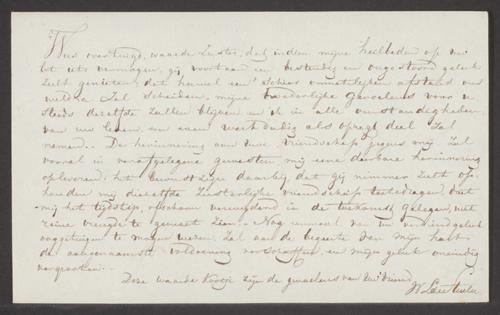 Wees overtuigd, waarde Zuster, dat indien mijne heilbeden op uw
lot iets vermogen, gij voortaan een bestendig en ongestoord geluk
zult genieten, dat hoewel een schier onmetelijke afstand ons
weldra zal scheiden, mijne broederlijke gevoelens voor u
steeds dezelfde zullen blijven en ik in alle omstandigheden
van uw leven een even werkdadig als opregt deel zal
nemen. De herinnering aan uwe vriendschap jegens mij zal
vooral in verafgelegene gewesten mij eene dierbare herinnering
opleveren: het bewustzijn daarbij dat gij nimmer zult op-
houden mij dezelfde zusterlijke vriendschap toetedragen, doet
mij het tijdstip, ofschoon verwijderd in de toekomst gelegen, met
reine vreugde te gemoet zien. Nog eenmaal van uw geluk
ooggetuigen te mogen wezen, zal aan de begeerte van mijn hart
de aangenaamste voldoening verschaffen en mijn geluk oneindig
vergrooten.
Deze waarde Koosje zijn de gevoelens van uw vriend